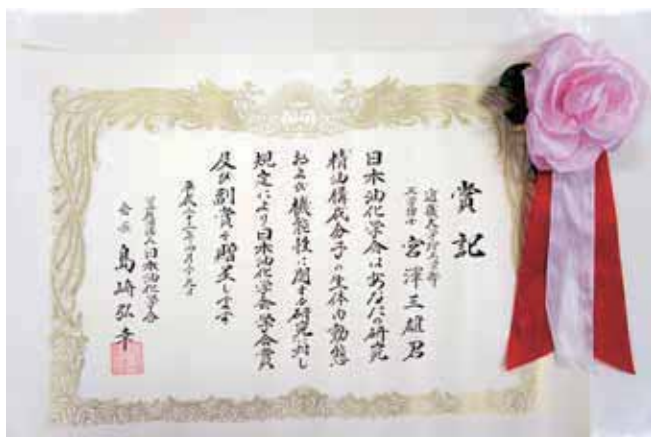 賞記
近畿大学理工学部
工学博士 宮澤三雄君
日本油化学会はあなたの研究
精油構成分子の生体内動態
および機能性に関する研究に対し
規定により日本油化学会学会賞
及び副賞を贈呈します
平成二十三年四月二十六日
日本油化学会
会長 島崎弘幸